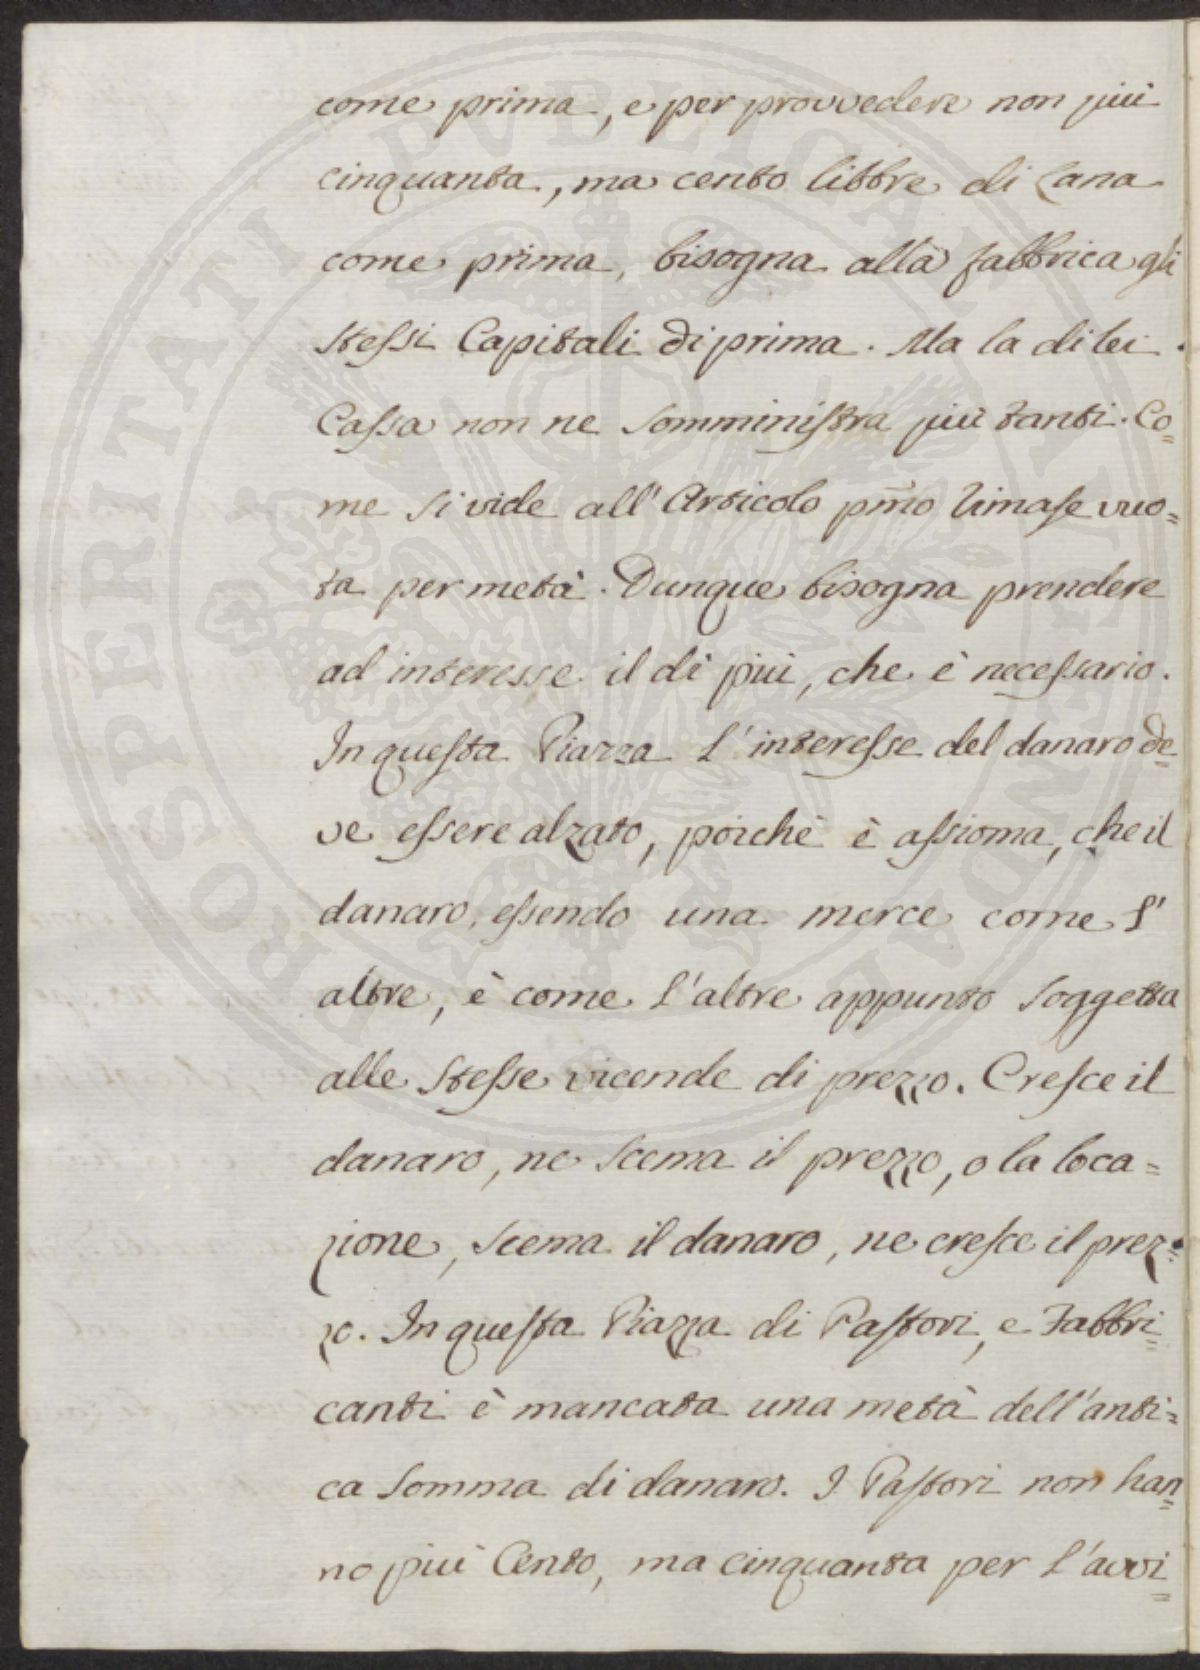 come prima, e per provvedere non più
cinquanta, ma cento libbre di Lana
come prima, bisogna alla fabbrica gli
stessi Capitali di prima. Ma la di lei
Cassa non ne somministra più tanti. Co=
me si vide all'Articolo pm̃o rimase vuo=
ta per metà. Dunque bisogna prendere
ad interesse il di più, che è necessario.
In questa Piazza l'interesse del danaro de=
ve essere alzato, poichè è assioma, che il
danaro, essendo una merce come l'
altre, è come l'altre appunto soggetta
alle stesse vicende di prezzo. Cresce il
danaro, ne scema il prezzo, o la loca=
zione, scema il danaro, ne cresce il prez=
zo. In questa Piazza di Pastori, e Fabbri=
canti è mancata una metà dell'anti=
ca somma di danaro. I Pastori non han=
no più Cento, ma cinquanta per l'avvi=
PROSPERITATI PVBLICAE AVGENDAE